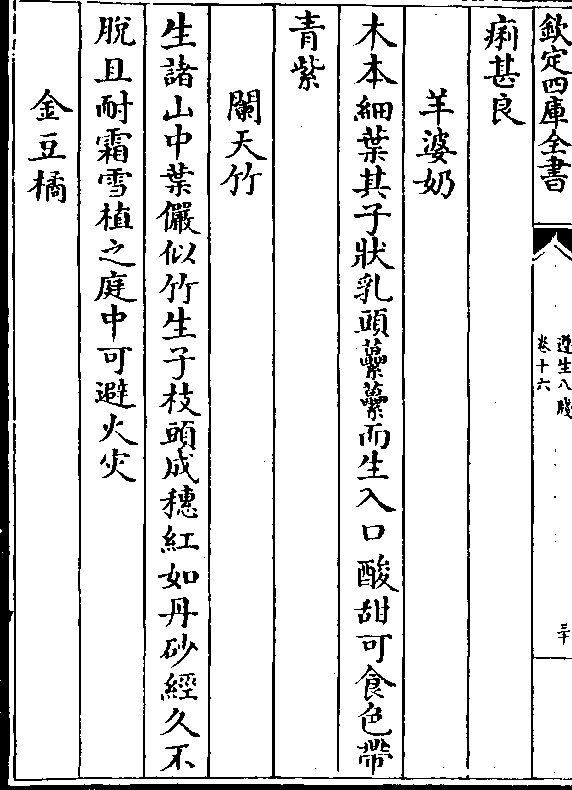 欽定四庫全書
遵生八牋
卷十六
三十
痢甚良
羊婆奶
木本細葉其子狀乳頭虆虆而生入口酸甜可食色帶
青紫
闌天竹
生諸山中葉儼似竹生子枝頭成穗紅如丹砂經久不
脫且耐霜雪植之庭中可避火灾
金豆橘